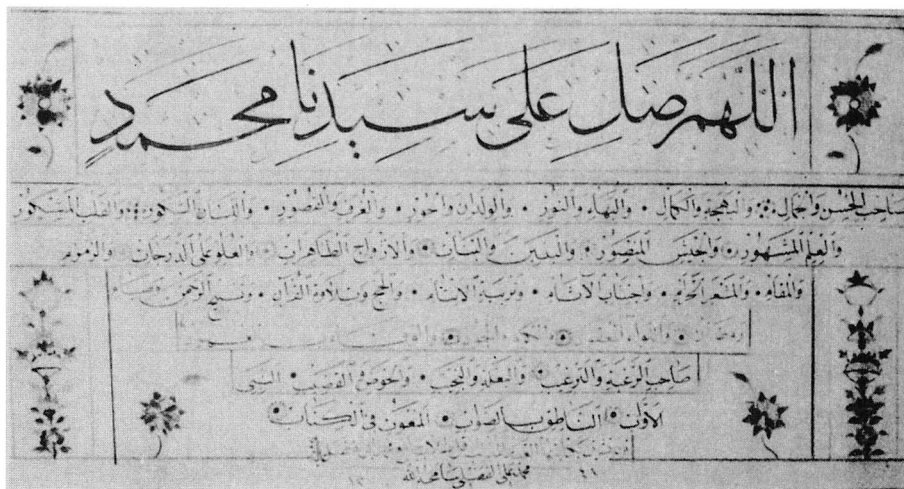 اللهم صل على سيدنا محمد
صاحب الحسن والجمال والبهجة والكمال والبهاء والنور والولدان والحور والغرف والقصور واللسان الشكور والقلب المشكور
والعلم المشهور والجيش المنصور والبنين والبنات والأزواج الطاهرات والعلو على الدرجات والزمزم
والمقام والمشعر الحرام واجتناب الآثام وتربية الأيتام والحج وتلاوة القرآن وتسبيح الرحمن وصيام
رمضان واللواء المعقود والكرم والجود والوفاء
صاحب الرغبة والترغيب والبغلة والنجيب والحوض والقضيب النبي
الأواب الناطق بالصواب المنعوت في الكتاب